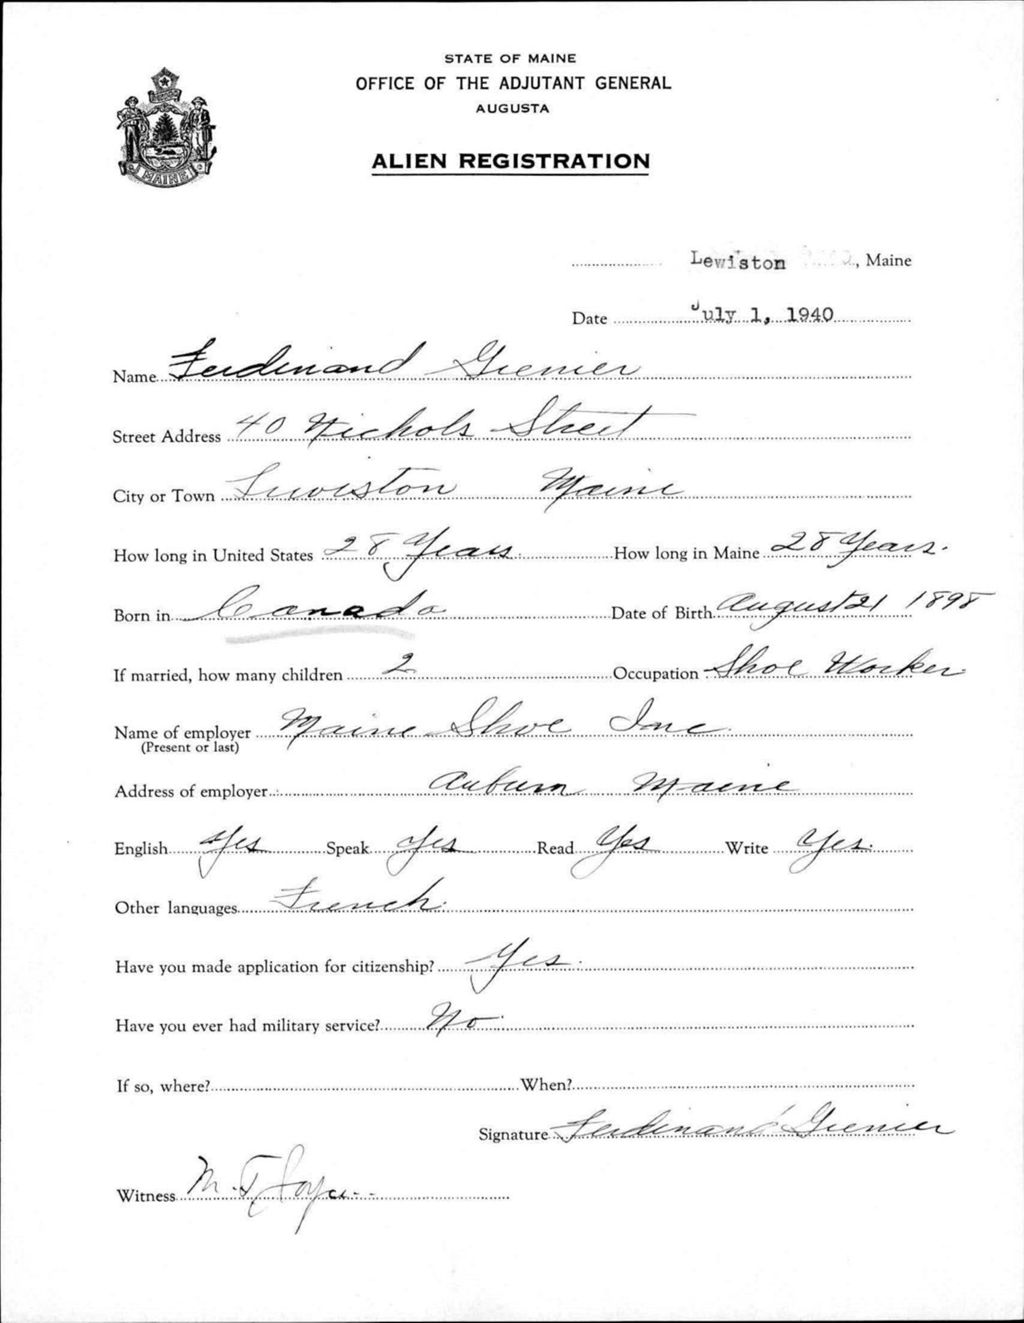 STATE OF MAINE
OFFICE OF THE ADJUTANT GENERAL
AUGUSTA
ALIEN REGISTRATION
MAINE
Lewiston, Maine
Date July 1, 1940
Name Ferdinand Grenier
Street Address 40 Nichols Street
City or Town Lewiston Maine
How long in United States 28 Years How long in Maine 28 Years.
Born in Canada Date of Birth August 21 1898
If married, how many children 2 Occupation Shoe Worker
Name of employer Maine Shoe Inc.
(Present or last)
Address of employer Auburn Maine
English Yes Speak Yes Read Yes Write Yes.
Other languages French.
Have you made application for citizenship? Yes.
Have you ever had military service? No.
If so, where? When?
Signature Ferdinand Grenier
Witness M. T.